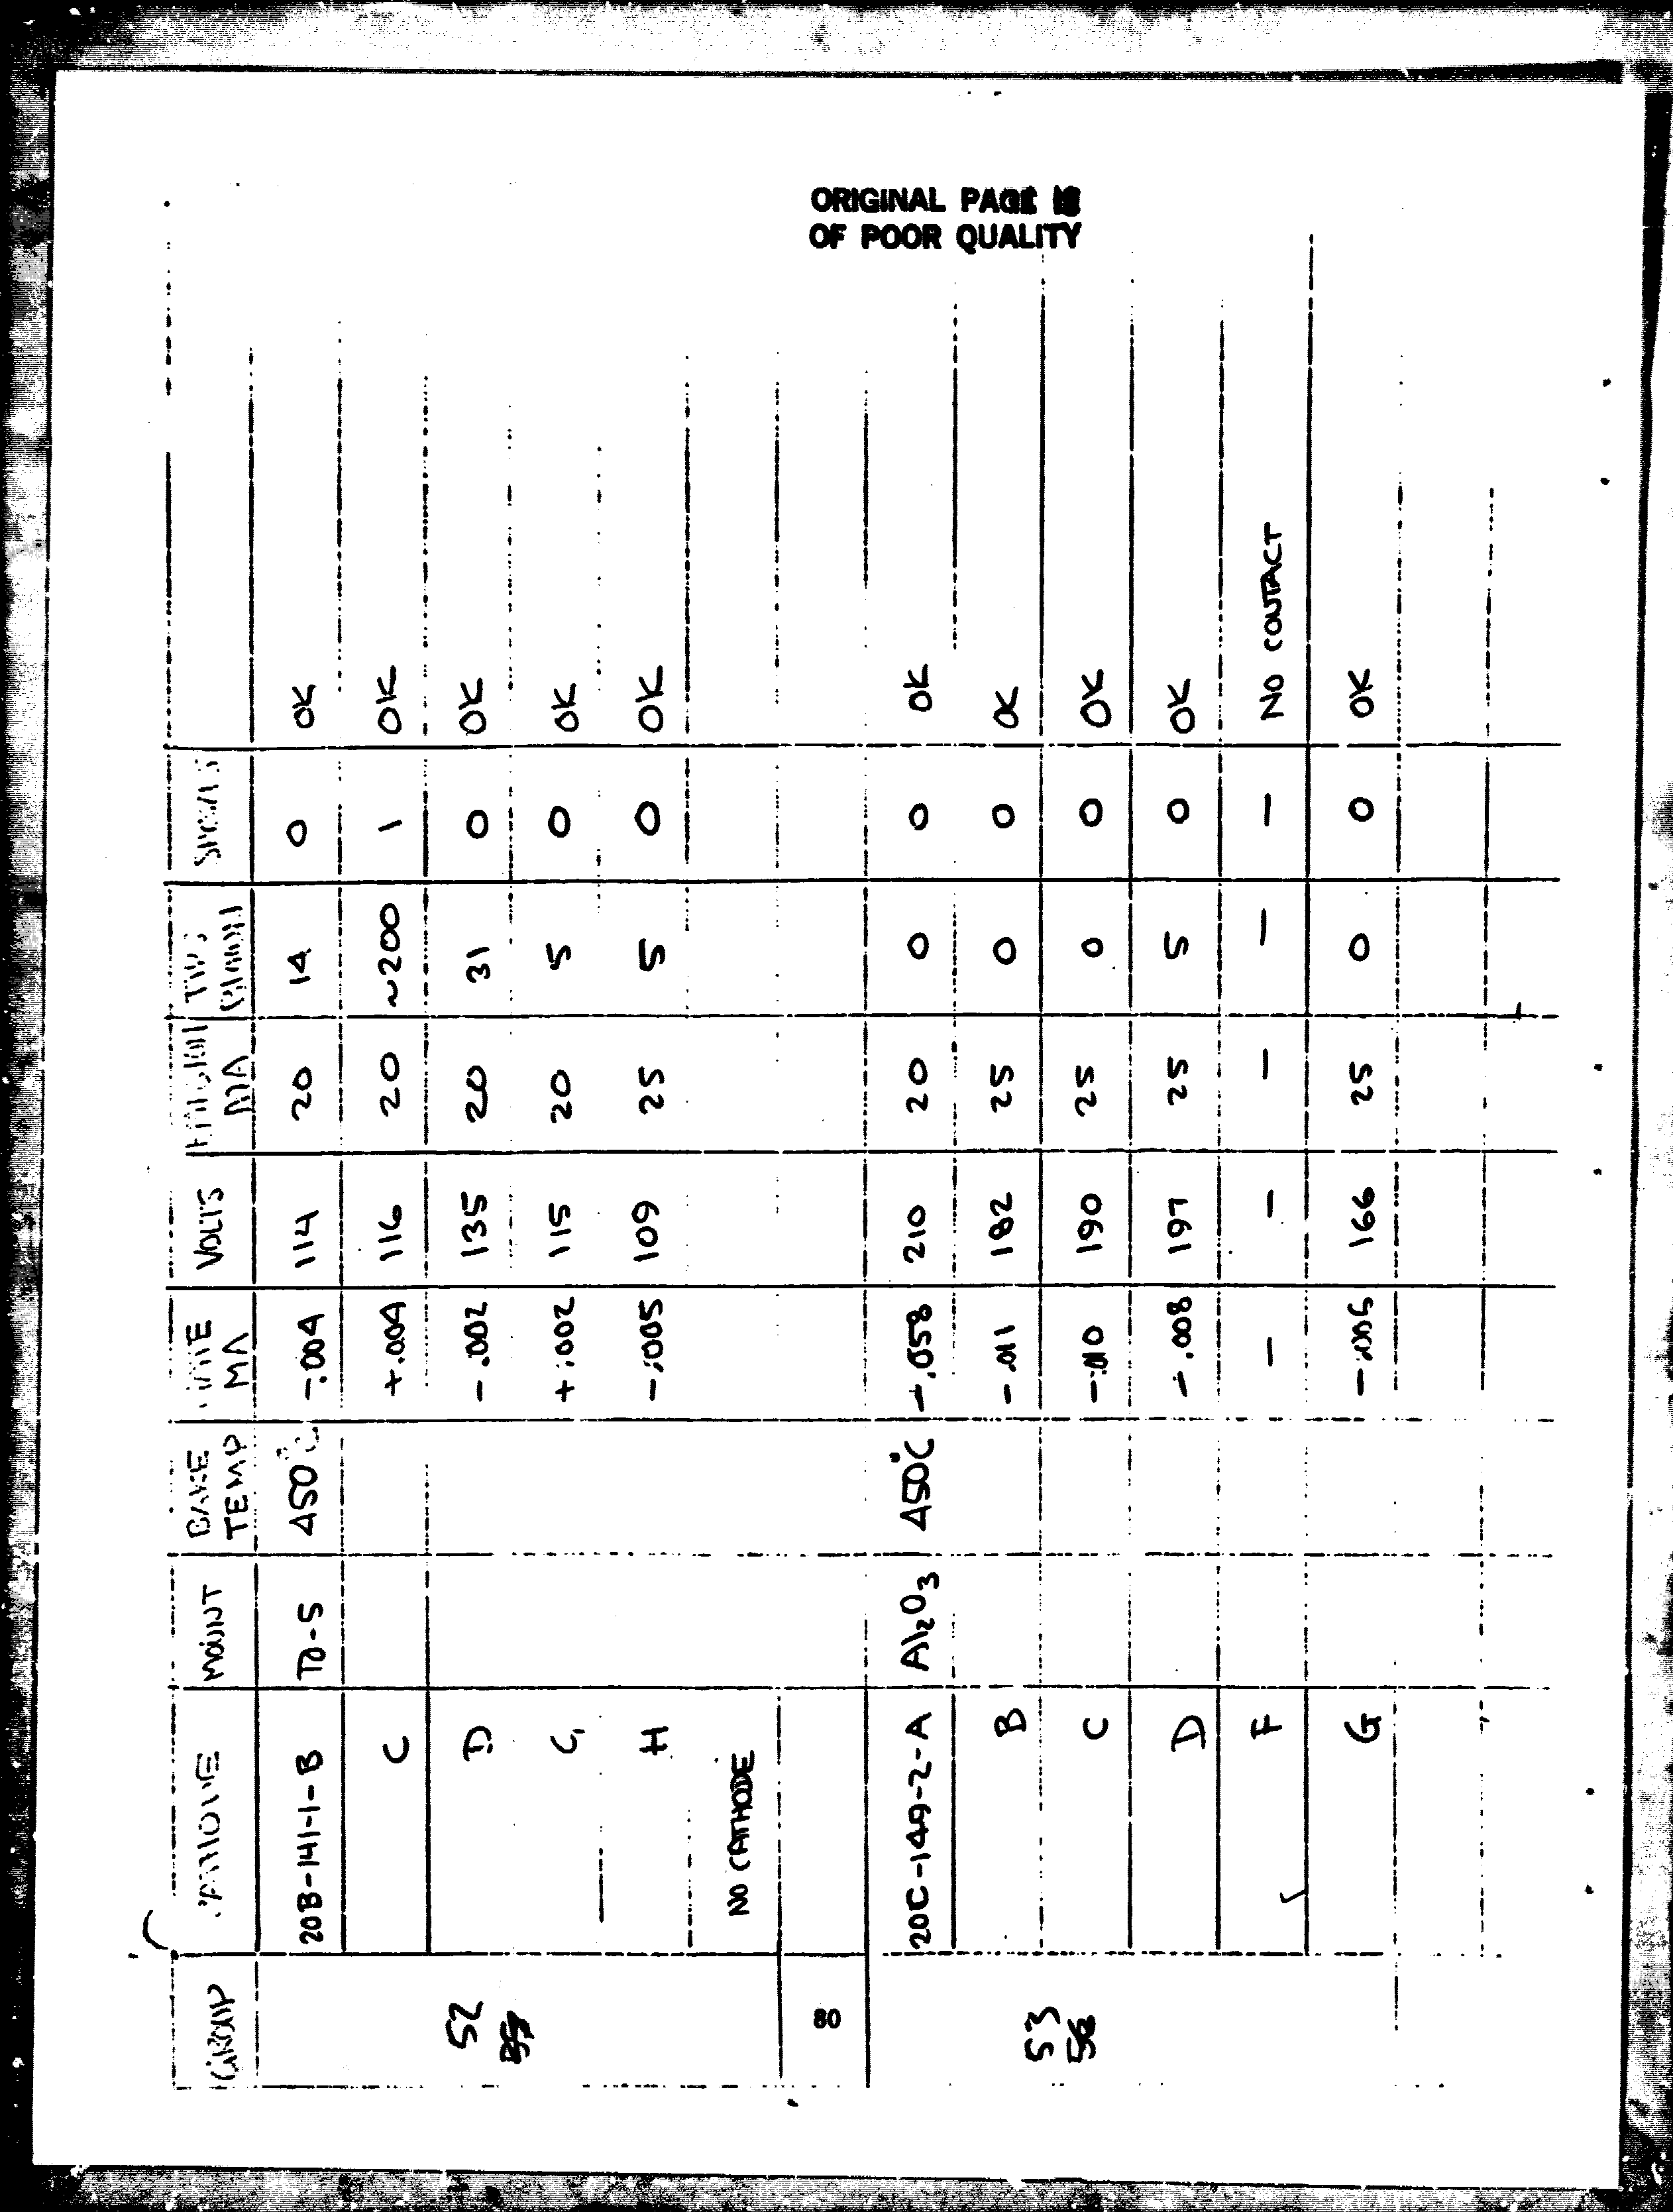 ORIGINAL PAGE IS
OF POOR QUALITY
GROUP CATHODE MOUNT BAKE TEMP MA VOLTS MA
20B-141-1-B TO-5 450°C -.004 114 20 14 0 OK
C +.004 116 20 ~200 1 OK
52 D -.002 135 20 31 0 OK
G +.002 115 20 5 0 OK
H -.005 109 25 5 0 OK
NO CATHODE
80
20C-149-2-A Al2O3 450°C -.058 210 20 0 0 OK
B -.01 182 25 0 0 OK
53 C -.010 190 25 0 0 OK
56 D -.008 197 25 5 0 OK
F - - - - - NO CONTACT
G -.006 166 25 0 0 OK